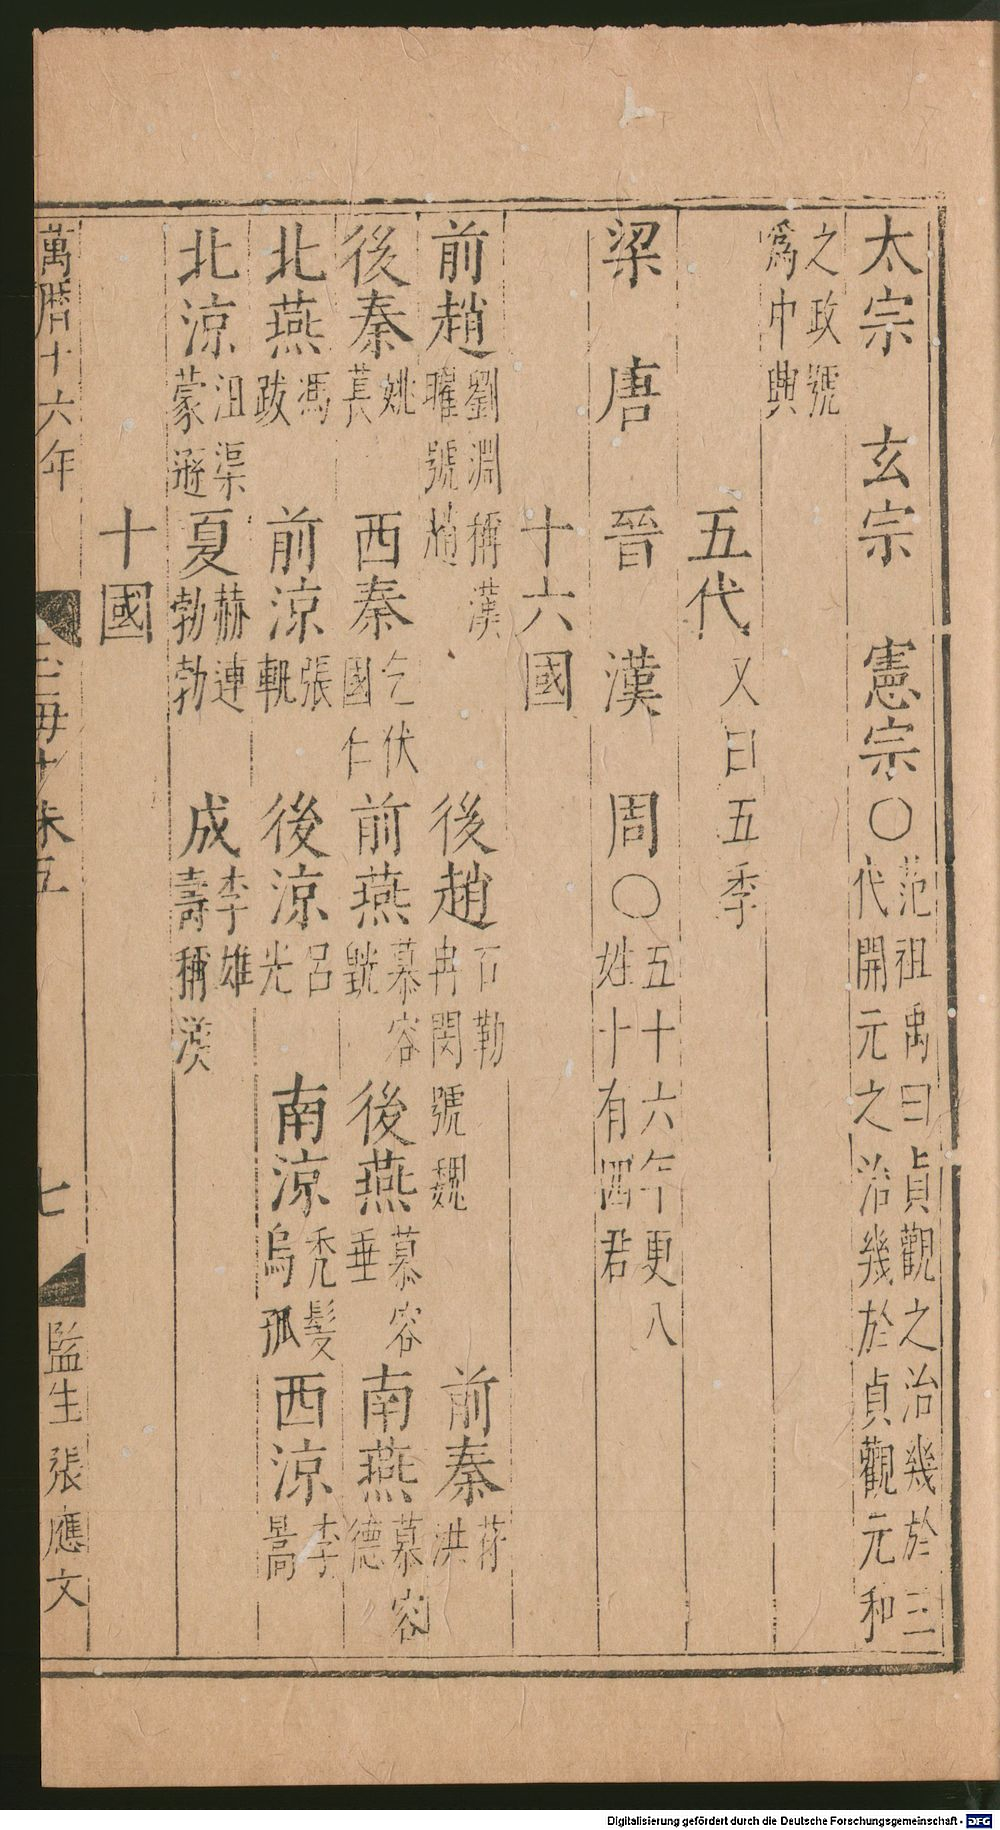 太宗　玄宗　憲宗○范祖禹曰貞觀之治幾於三代開元之治幾於貞觀元和
之政號爲中興
五代又曰五季
梁　唐　晉　漢　周○五十六年更八姓十有四君
十六國
前趙劉淵稱漢曜號趙　後趙石勒冉閔號魏　前秦苻洪
後秦姚萇　西秦乞伏國仁　前燕慕容皝　後燕慕容垂　南燕慕容德
北燕馮跋　前涼張軌　後涼呂光　南涼禿髮烏孤　西涼李暠
北涼沮渠蒙遜　夏赫連勃勃　成李雄壽稱漢
十國
萬曆十六年　玉海　卷五　七　監生張應文
Digitalisierung gefördert durch die Deutsche Forschungsgemeinschaft - DFG